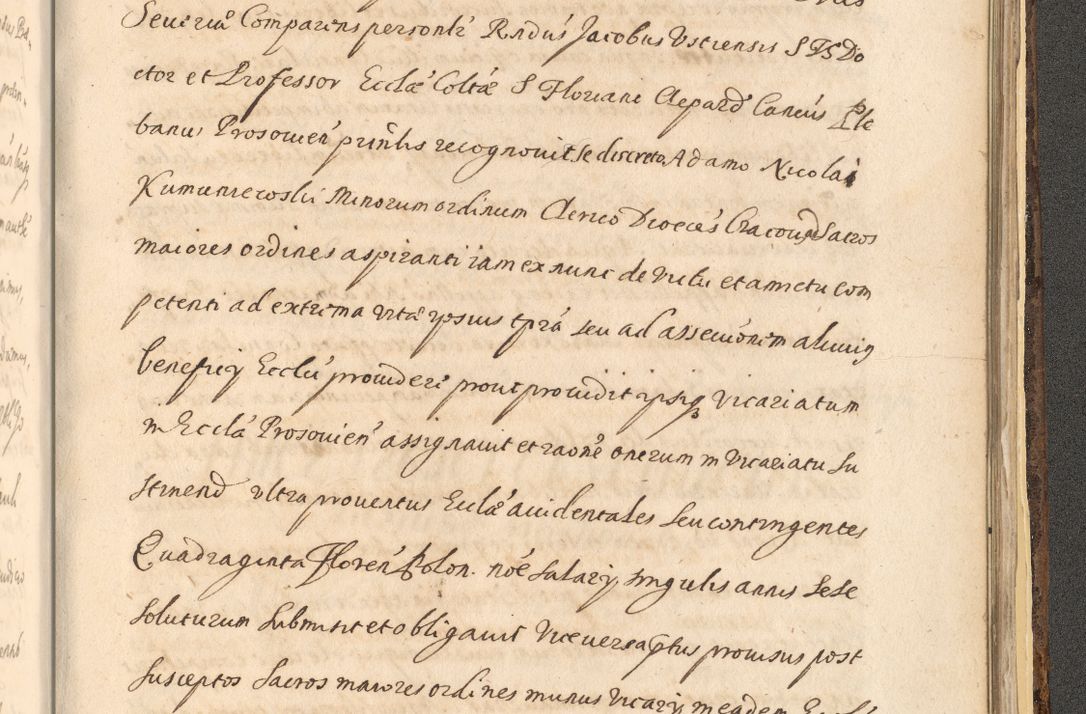 Seueriae Comparens personlr Rndus Jacobus Vstiensis S Ts Do
ctor et Professor Ecclae Coltae S Floriani Clepard Cancus Ple
banus Prosouien prntis recognouit se discreto Adamo Nicolai
Kumuniecoski Minorum ordinum Clerico Dioeces Cracouien ad Sacros
maiores ordines aspiranti iam ex nunc de victu et amictu com
petenti ad extrema vitae ipsius tpra seu ad assecutionem alicuiq
beneficij Eccln prouidere prout prouidit ipsiq Vicariatum
in Eccla Prosouien assignauit et raone onerum in Vicariatu su
stinend vltra prouentus Ecclae accidentales seu contingentes
Quadraginta Floren Polon. noe salarij singulis annis se se
soluturum submisit et obligauit Vice versa ptus prouisus post
susceptos sacros maiores ordines munus Vicarij in eadem